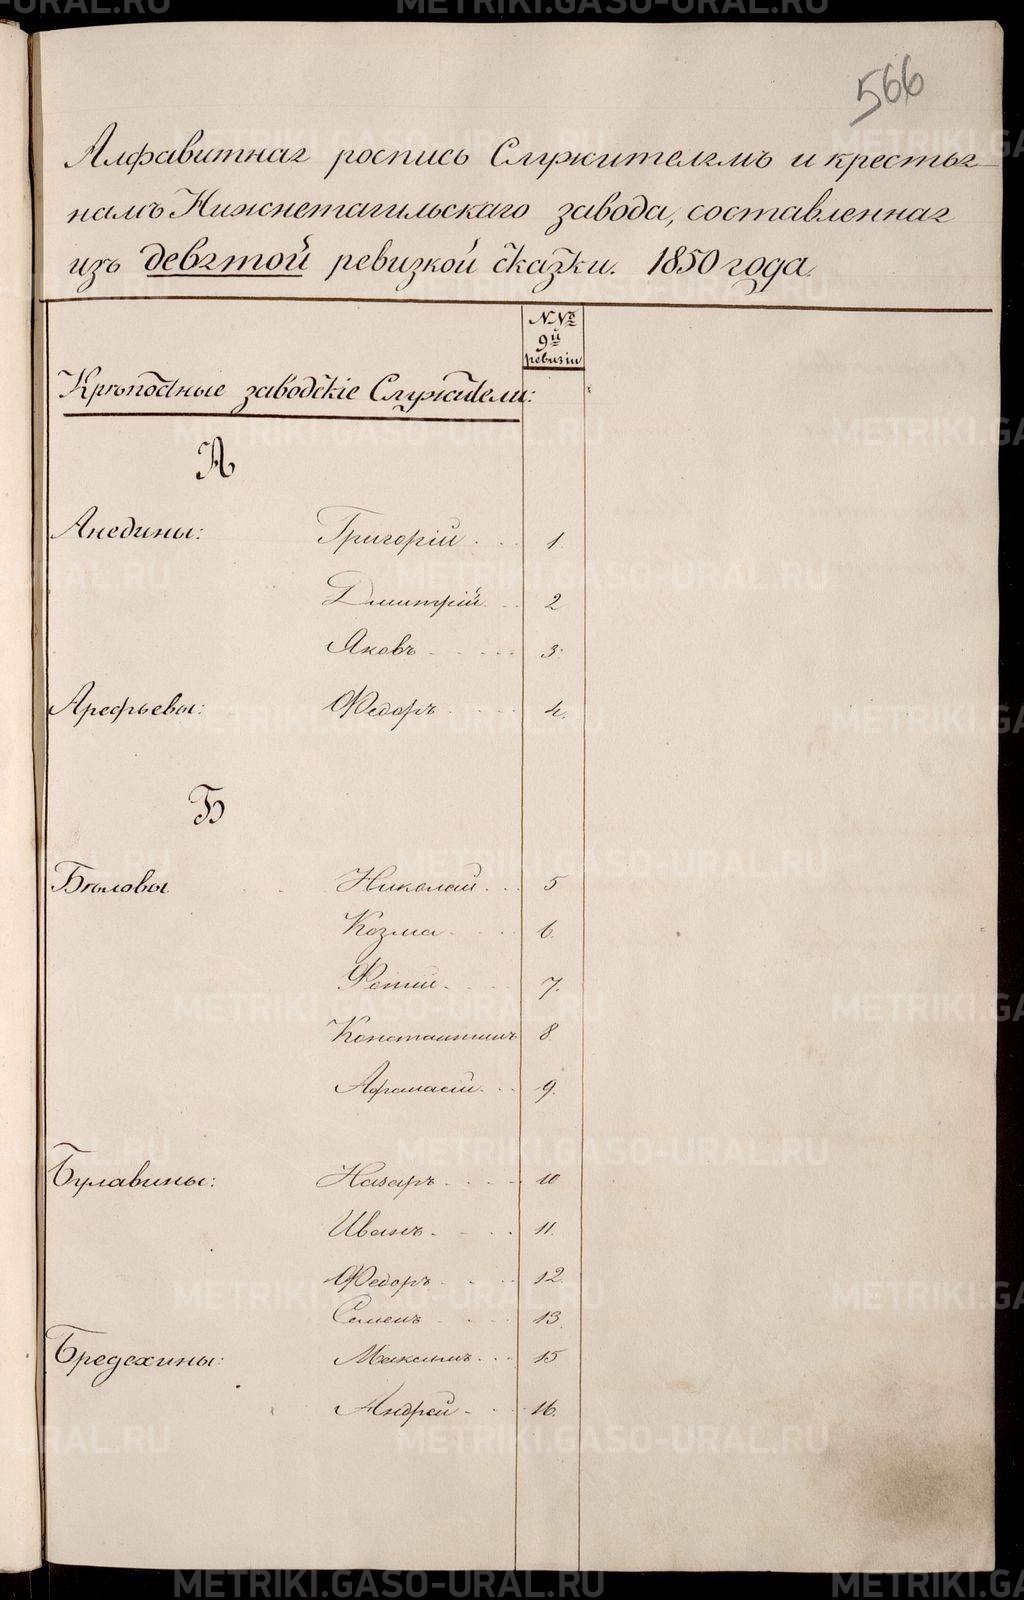 566
Алфавитная роспись Служителямъ и крестья-
намъ Нижнетагильскаго завода, составленная
изъ девятой ревизкой сказки. 1850 года.
N.№
9й
ревизіи
Крѣпостные заводскіе Служители:
А
Анедины: Григорій 1.
Дмитрій 2
Яковъ 3.
Арефьевы: Федоръ 4.
Б
Бѣловы Николай 5
Козма 6.
Фотий 7.
Константинъ 8.
Афанасій 9.
Булавины: Назаръ 10
Иванъ 11.
Федоръ 12.
Семенъ 13.
Бредехины: Максимъ 15
Андрей 16.
METRIKI.GASO-URAL.RU